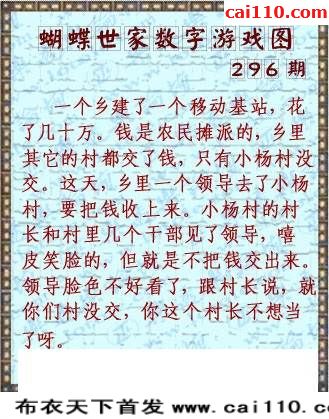 cai110.com
蝴蝶世家数字游戏图
296期
一个乡建了一个移动基站，花
了几十万。钱是农民摊派的，乡里
其它的村都交了钱，只有小杨村没
交。这天，乡里一个领导去了小杨
村，要把钱收上来。小杨村的村
长和村里几个干部见了领导，嘻
皮笑脸的，但就是不把钱交出来。
领导脸色不好看了，跟村长说，就
你们村没交，你这个村长不想当
了呀。
布衣天下首发 www.cai110.c